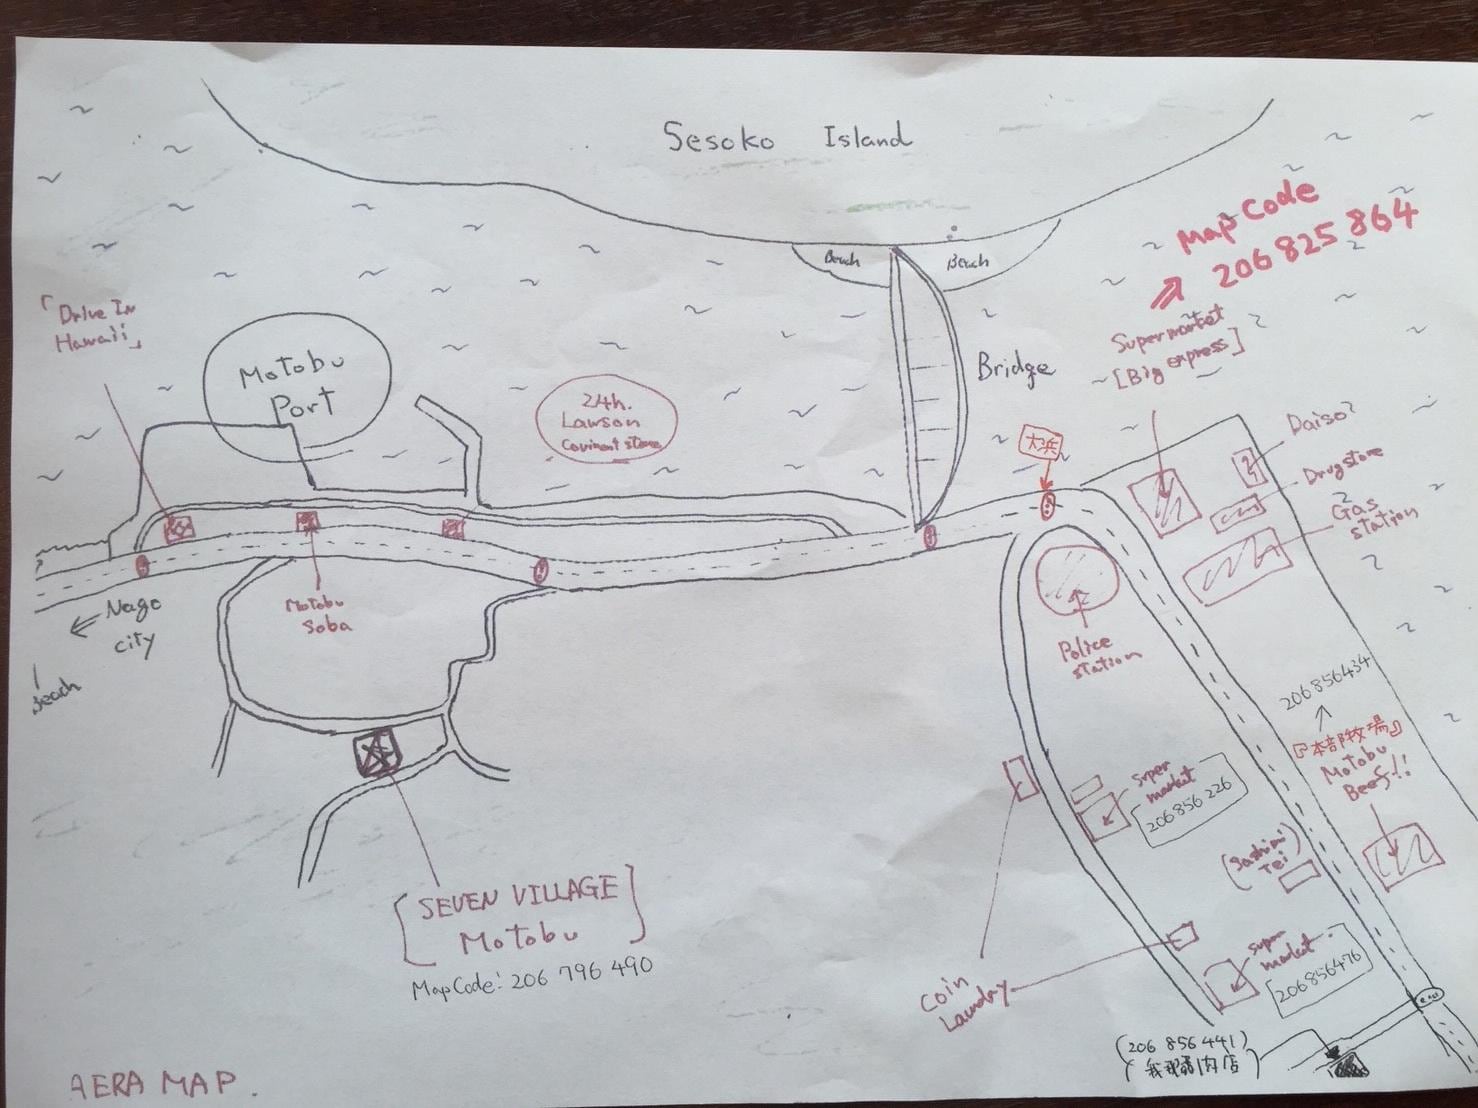 Sesoko Island
Map Code
206 825 864
Supermarket
[Big express]
Beach
Beach
Bridge
「Drive In
Hawaii」
Motobu
Port
24h.
Lawson
Covinent store
大浜
Daiso?
Drugstore
Gas
station
Nago
city
Beach
Motobu
Soba
Police
station
206 856 434
『本部牧場』
Motobu
Beef!!
super
market
206 856 226
(Sashimi
Tei)
super
market
206856476
Coin
Laundry
[SEVEN VILLAGE
Motobu]
MapCode: 206 796 490
(206 856 441)
肉店
AERA MAP.